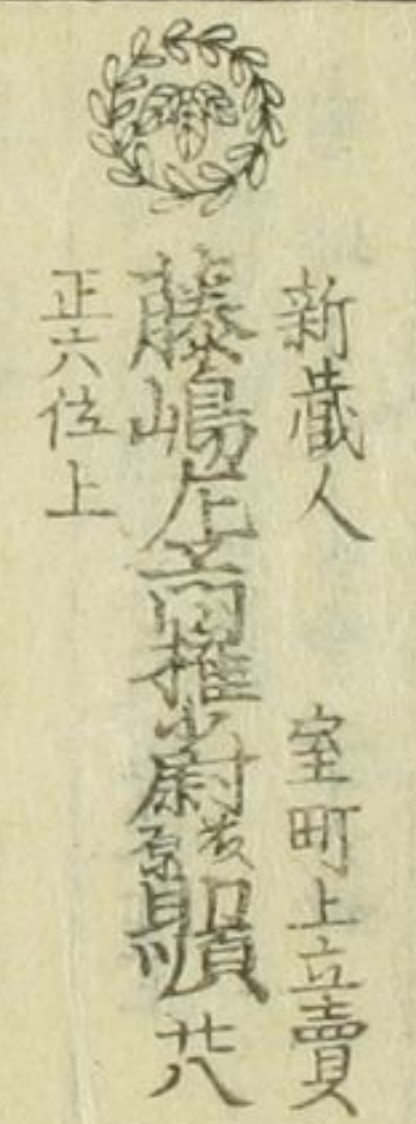 新蔵人　室町上立賣
藤嶋左エ門権少尉藤原助順 廿八
正六位上